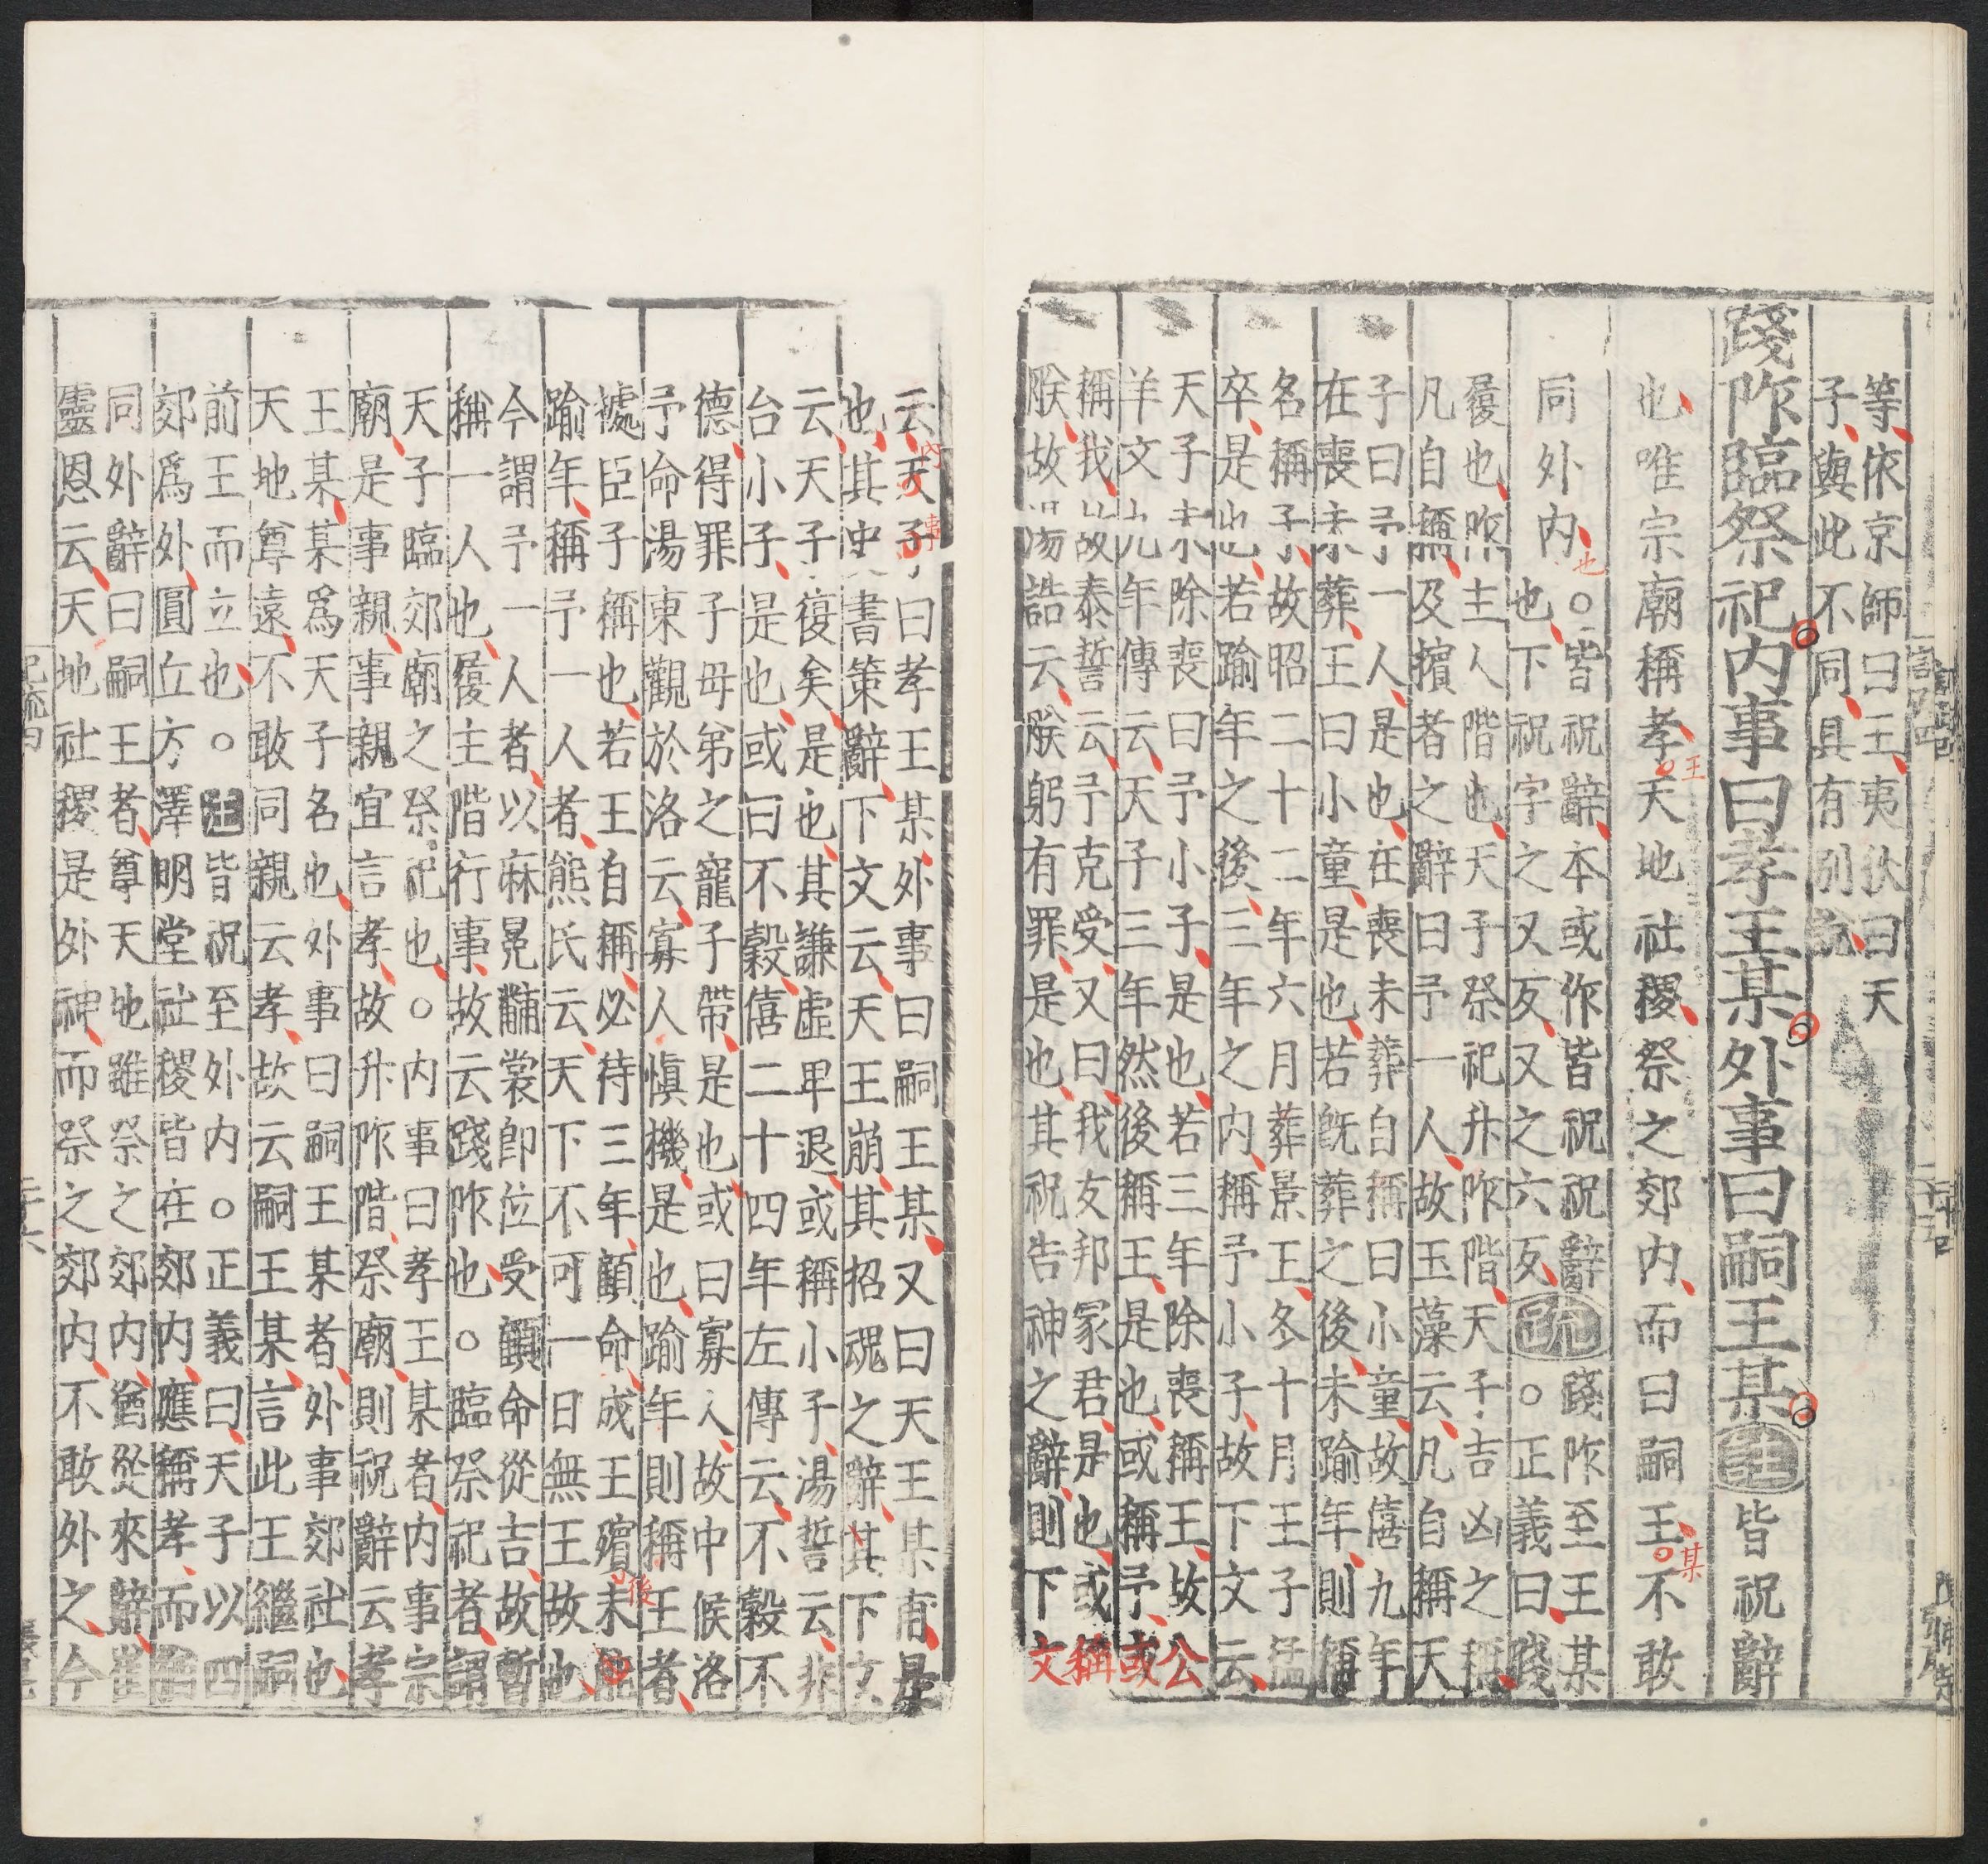 等依京師曰王夷狄曰天
子與此不同具有別說
踐阼臨祭祀內事曰孝王某外事曰嗣王某註皆祝辭
也唯宗廟稱孝天地社稷祭之郊內而曰嗣王不敢
王
某
同外內
也
○皆祝辭本或作皆祝祝辭
也下祝字之又反又之六反疏
○踐阼至王某
○正義曰踐
履也阼主人階也天子祭祀升阼階天子吉凶之稱
凡自稱及擯者之辭曰予一人故玉藻云凡自稱天
子曰予一人是也在喪未葬自稱曰小童故僖九年
在喪未葬王曰小童是也若旣葬之後未踰年則稱
名稱子故昭二十二年六月葬景王冬十月王子猛
卒是也若踰年之後三年之內稱予小子故下文云
天子未除喪曰予小子是也若三年除喪稱王故公
羊文九年傳云天子三年然後稱王是也或稱予或
稱我故泰誓云予克受又曰我友邦冢君是也或稱
朕故湯誥云朕躬有罪是也其祝告神之辭則下文
云天子曰孝王某外事曰嗣王某又曰天王某甫是
內
事
也其史書策辭下文云天王崩其招魂之辭其下文
云天子復矣是也其謙虛卑退或稱小子湯誓云非
台小子是也或曰不穀僖二十四年左傳云不穀不
德得罪于母弟之寵子帶是也或曰寡人故中候洛
予命湯東觀於洛云寡人愼機是也踰年則稱王者
據臣子稱也若王自稱必待三年顧命成王殯未能
後
踰年稱予一人者熊氏云天下不可一日無王故也
今謂予一人者以麻冕黼裳卽位受顧命從吉故暫
稱一人也履主階行事故云踐阼也○臨祭祀者謂
天子臨郊廟之祭祀也○內事曰孝王某者內事宗
廟是事親事親宜言孝故升阼階祭廟則祝辭云孝
王某某爲天子名也外事曰嗣王某者外事郊社也
天地尊遠不敢同親云孝故云嗣王某言此王繼嗣
前王而立也○註皆祝至外內○正義曰天子以四
郊爲外圓丘方澤明堂社稷皆在郊內應稱孝而
同外辭曰嗣王者尊天地雖祭之郊內猶從來辭崔
靈恩云天地社稷是外神而祭之郊內不敢外之今